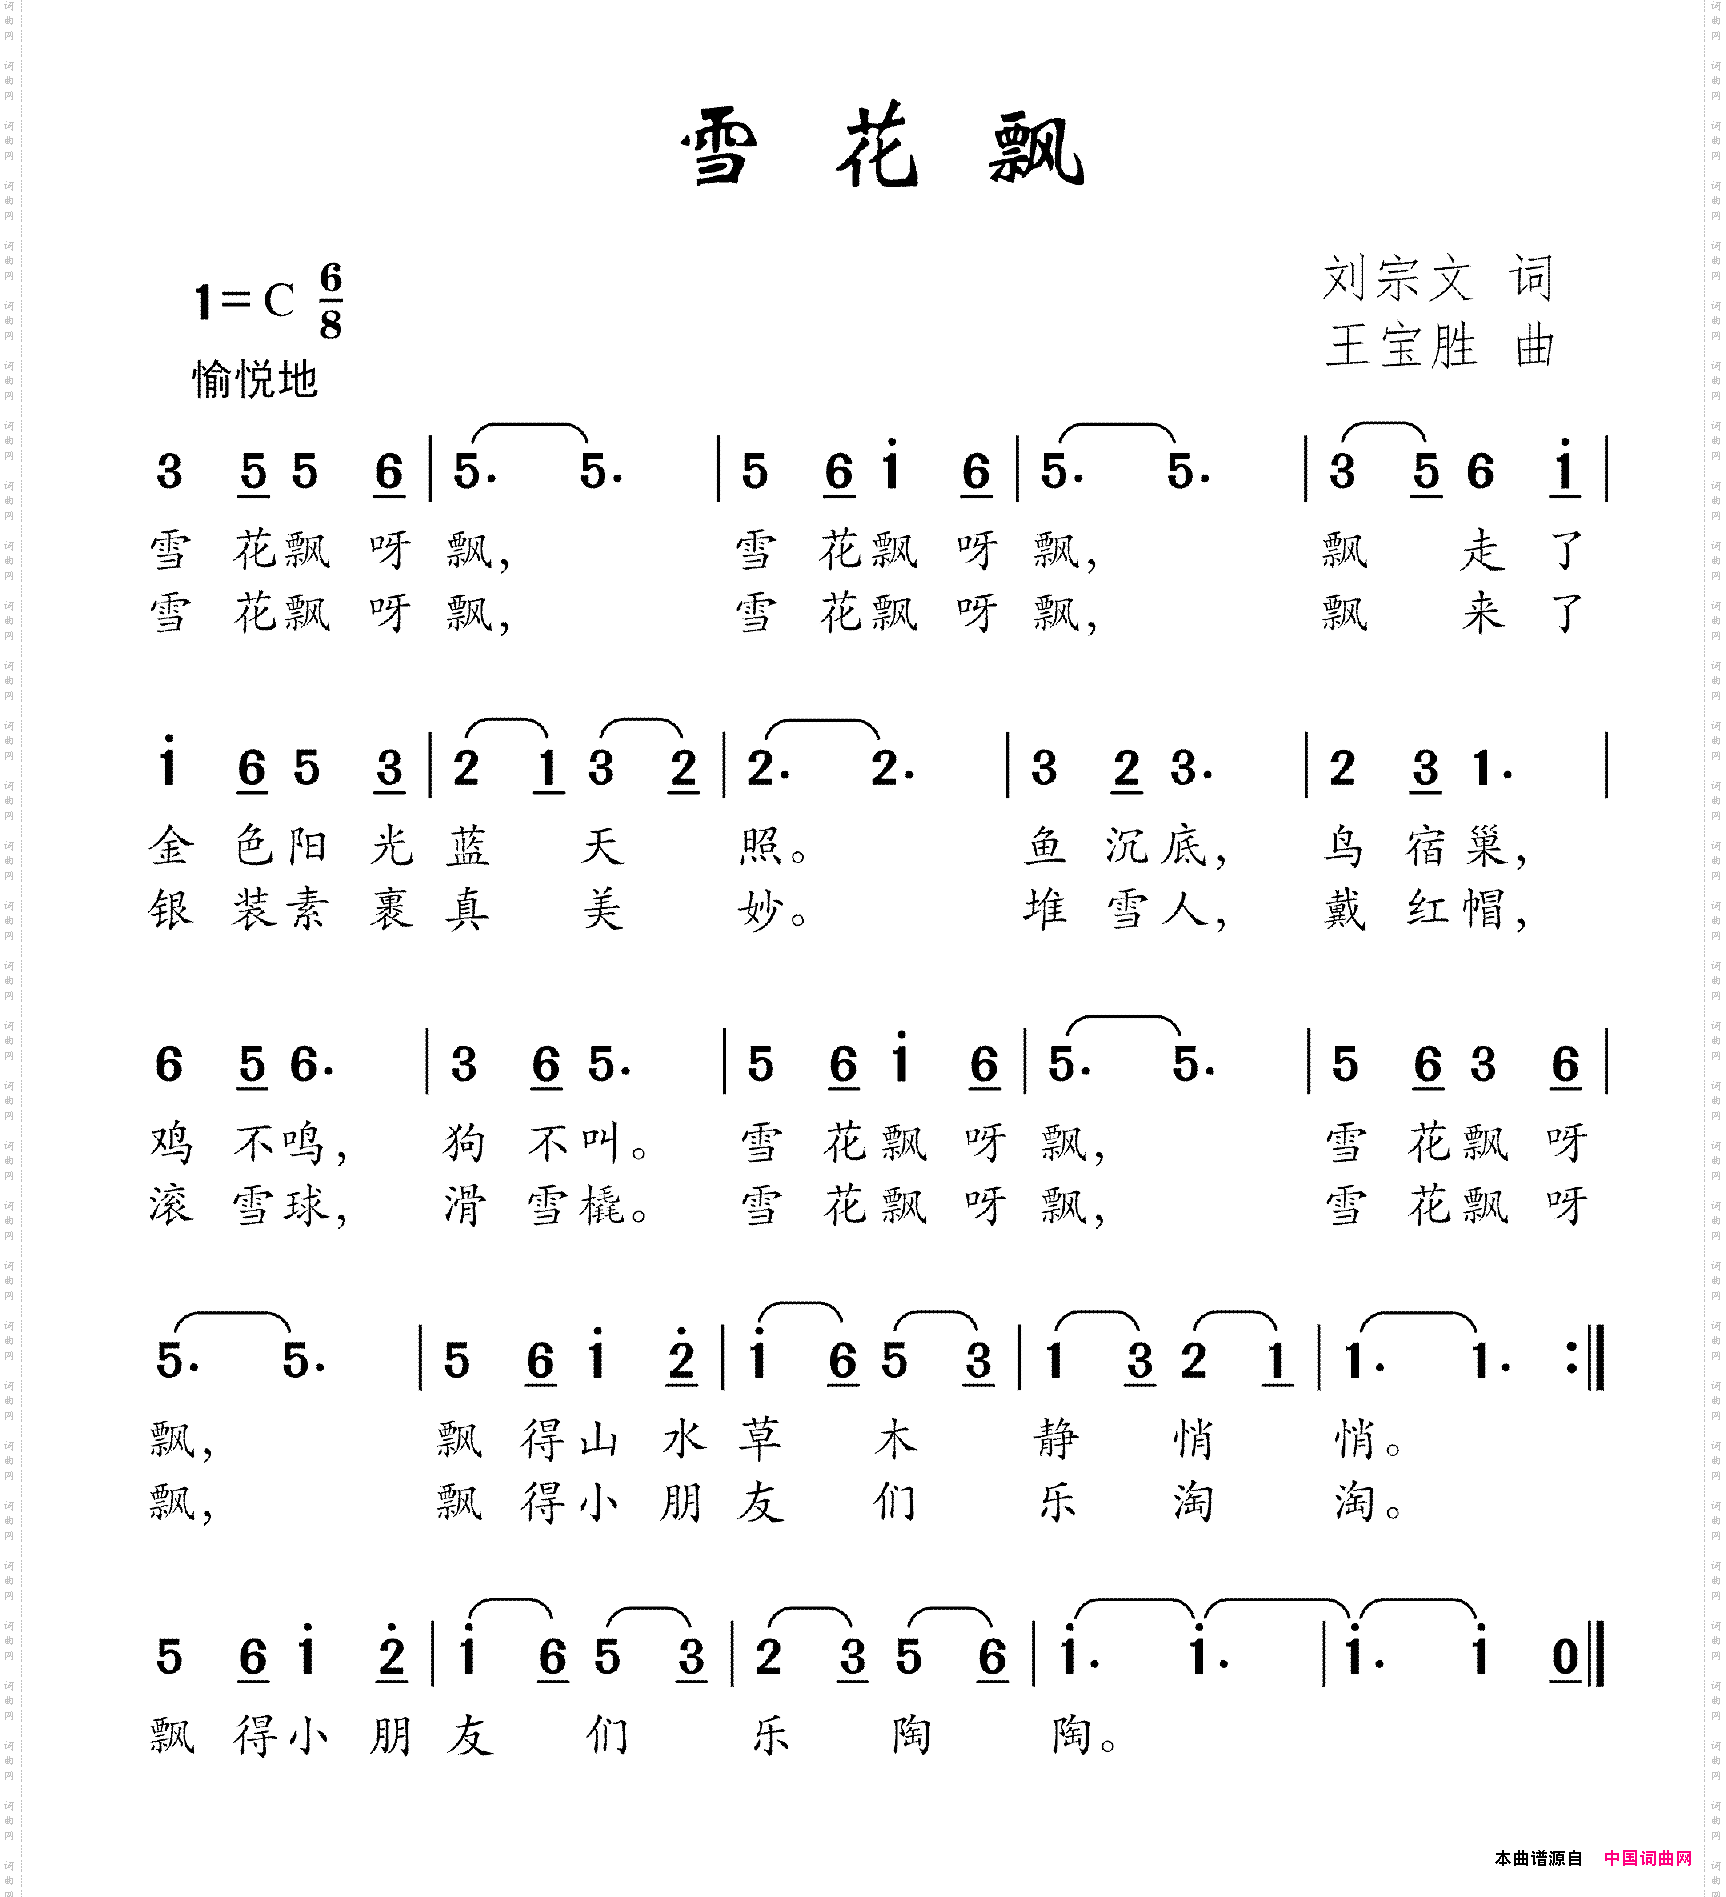 雪花飘
1=C 6/8
刘宗文 词
王宝胜 曲
愉悦地
3 5 5 6 | 5. 5. | 5 6 i 6 | 5. 5. | 3 5 6 i |
雪 花飘 呀 飘, 雪 花飘 呀 飘, 飘 走 了
雪 花飘 呀 飘, 雪 花飘 呀 飘, 飘 来 了
i 6 5 3 | 2 1 3 2 | 2. 2. | 3 2 3. | 2 3 1. |
金 色阳 光 蓝 天 照。 鱼 沉底, 鸟 宿巢,
银 装素 裹 真 美 妙。 堆 雪人, 戴 红帽,
6 5 6. | 3 6 5. | 5 6 i 6 | 5. 5. | 5 6 3 6 |
鸡 不鸣, 狗 不叫。 雪 花飘 呀 飘, 雪 花飘 呀
滚 雪球, 滑 雪橇。 雪 花飘 呀 飘, 雪 花飘 呀
5. 5. | 5 6 i 2̇ | i 6 5 3 | 1 3 2 1 | 1. 1. :‖
飘, 飘 得山 水 草 木 静 悄 悄。
飘, 飘 得小 朋 友 们 乐 淘 淘。
5 6 i 2̇ | i 6 5 3 | 2 3 5 6 | i. i. | i. i 0 ‖
飘 得小 朋 友 们 乐 陶 陶。
本曲谱源自 中国词曲网